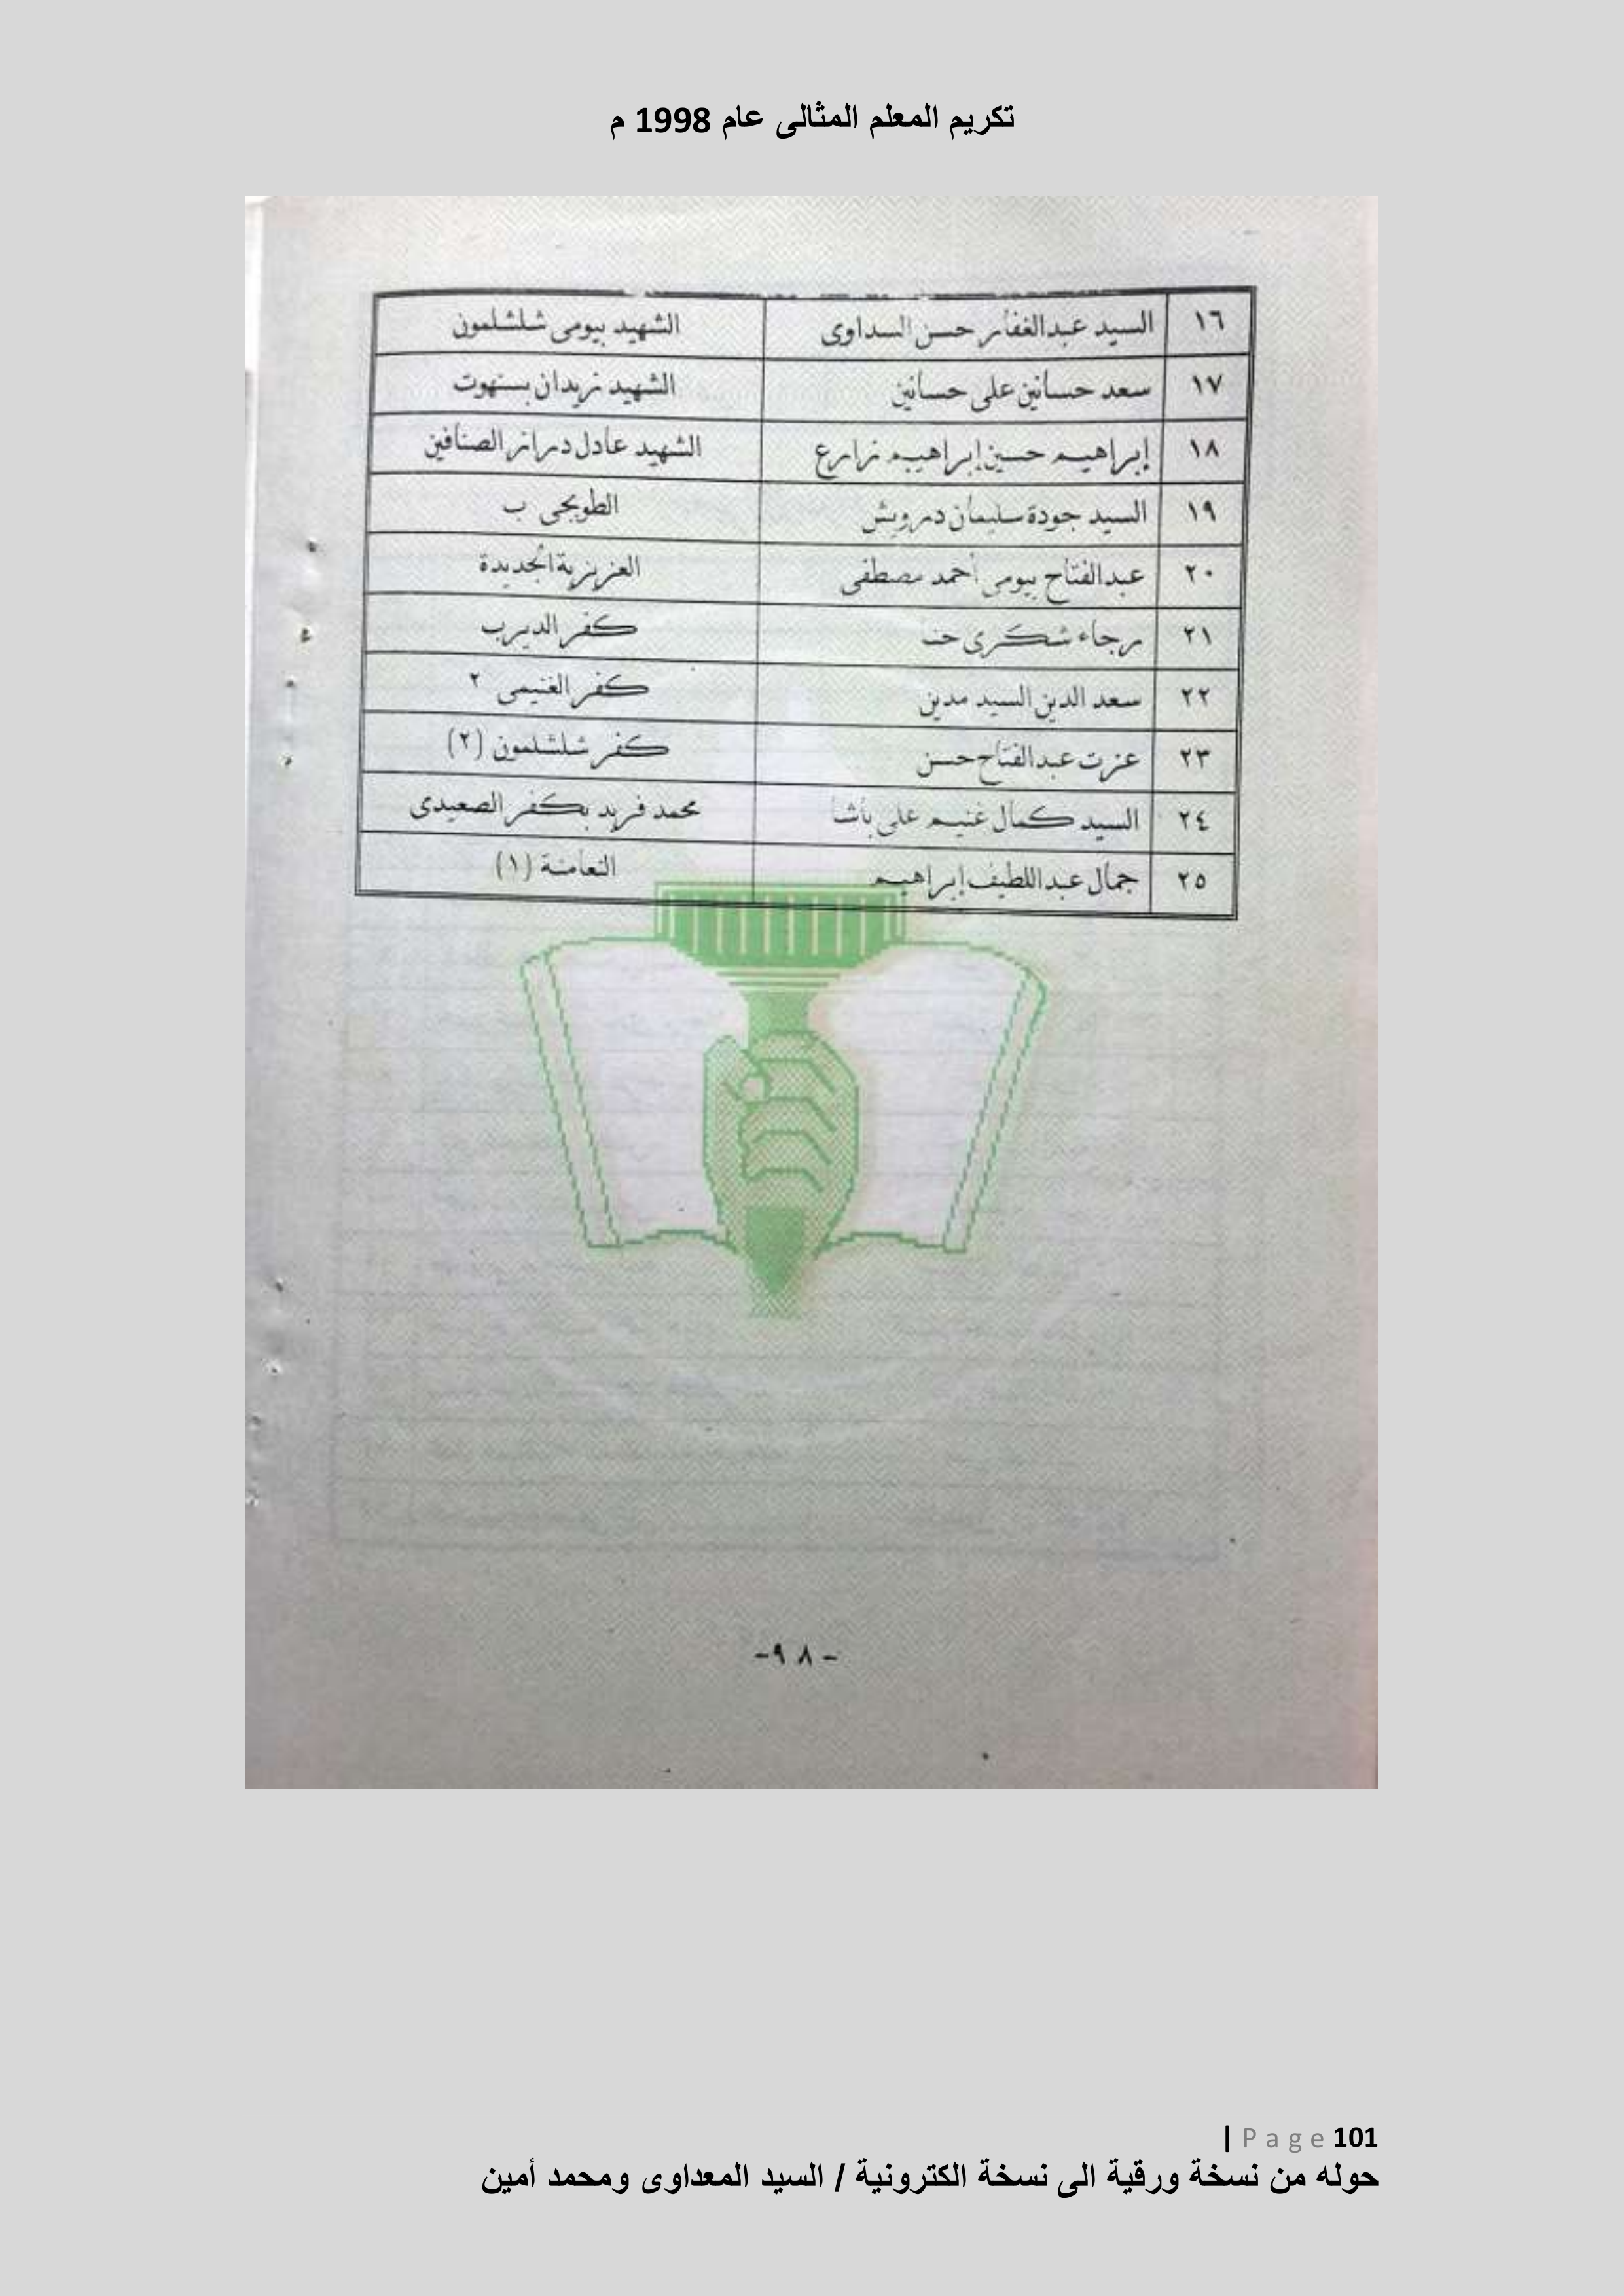 تكريم المعلم المثالى عام 1998 م
١٦ السيد عبدالغفار حسن السداوى الشهيد بيومى شلشلمون
١٧ سعد حسانين على حسانين الشهيد زيدان بسنهوت
١٨ إبراهيم حسين إبراهيم زارع الشهيد عادل دراز الصنافين
١٩ السيد جودة سليمان درويش الطويجى ب
٢٠ عبدالفتاح بيومى أحمد مصطفى العزيزية الجديدة
٢١ رجاء شكرى كفر الديرب
٢٢ سعد الدين السيد مدين كفر الغنيمى ٢
٢٣ عزت عبدالفتاح حسن كفر شلشلمون (٢)
٢٤ السيد كمال غنيم على باشا محمد فريد بكفر الصعيدى
٢٥ جمال عبداللطيف إبراهيم النعامنة (١)
-٩٨-
| Page 101
حوله من نسخة ورقية الى نسخة الكترونية / السيد المعداوى ومحمد أمين